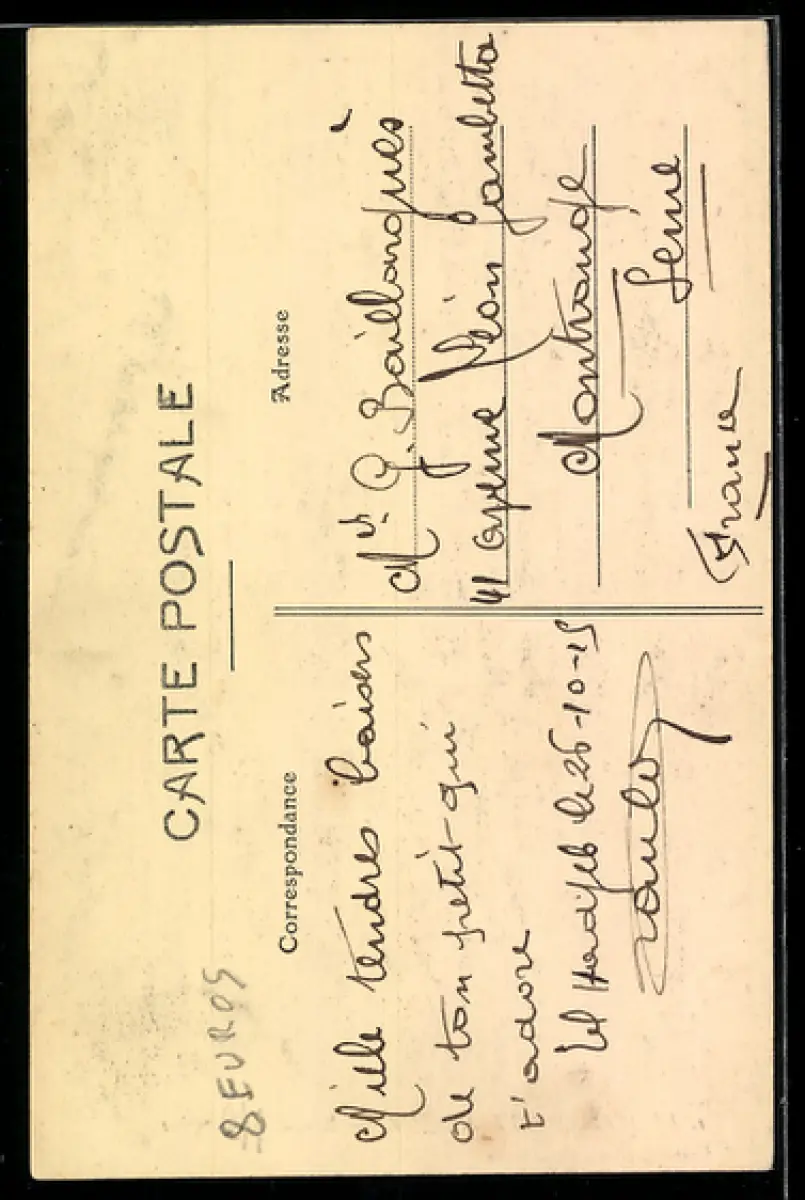 8 EUROS
CARTE POSTALE
Correspondance
Adresse
Mille tendres baisers
de ton petit qui
t'adore
El Hadjeb le 26-10-15
Mme G.
41 avenue Léon Gambetta
Montrouge
Seine
France